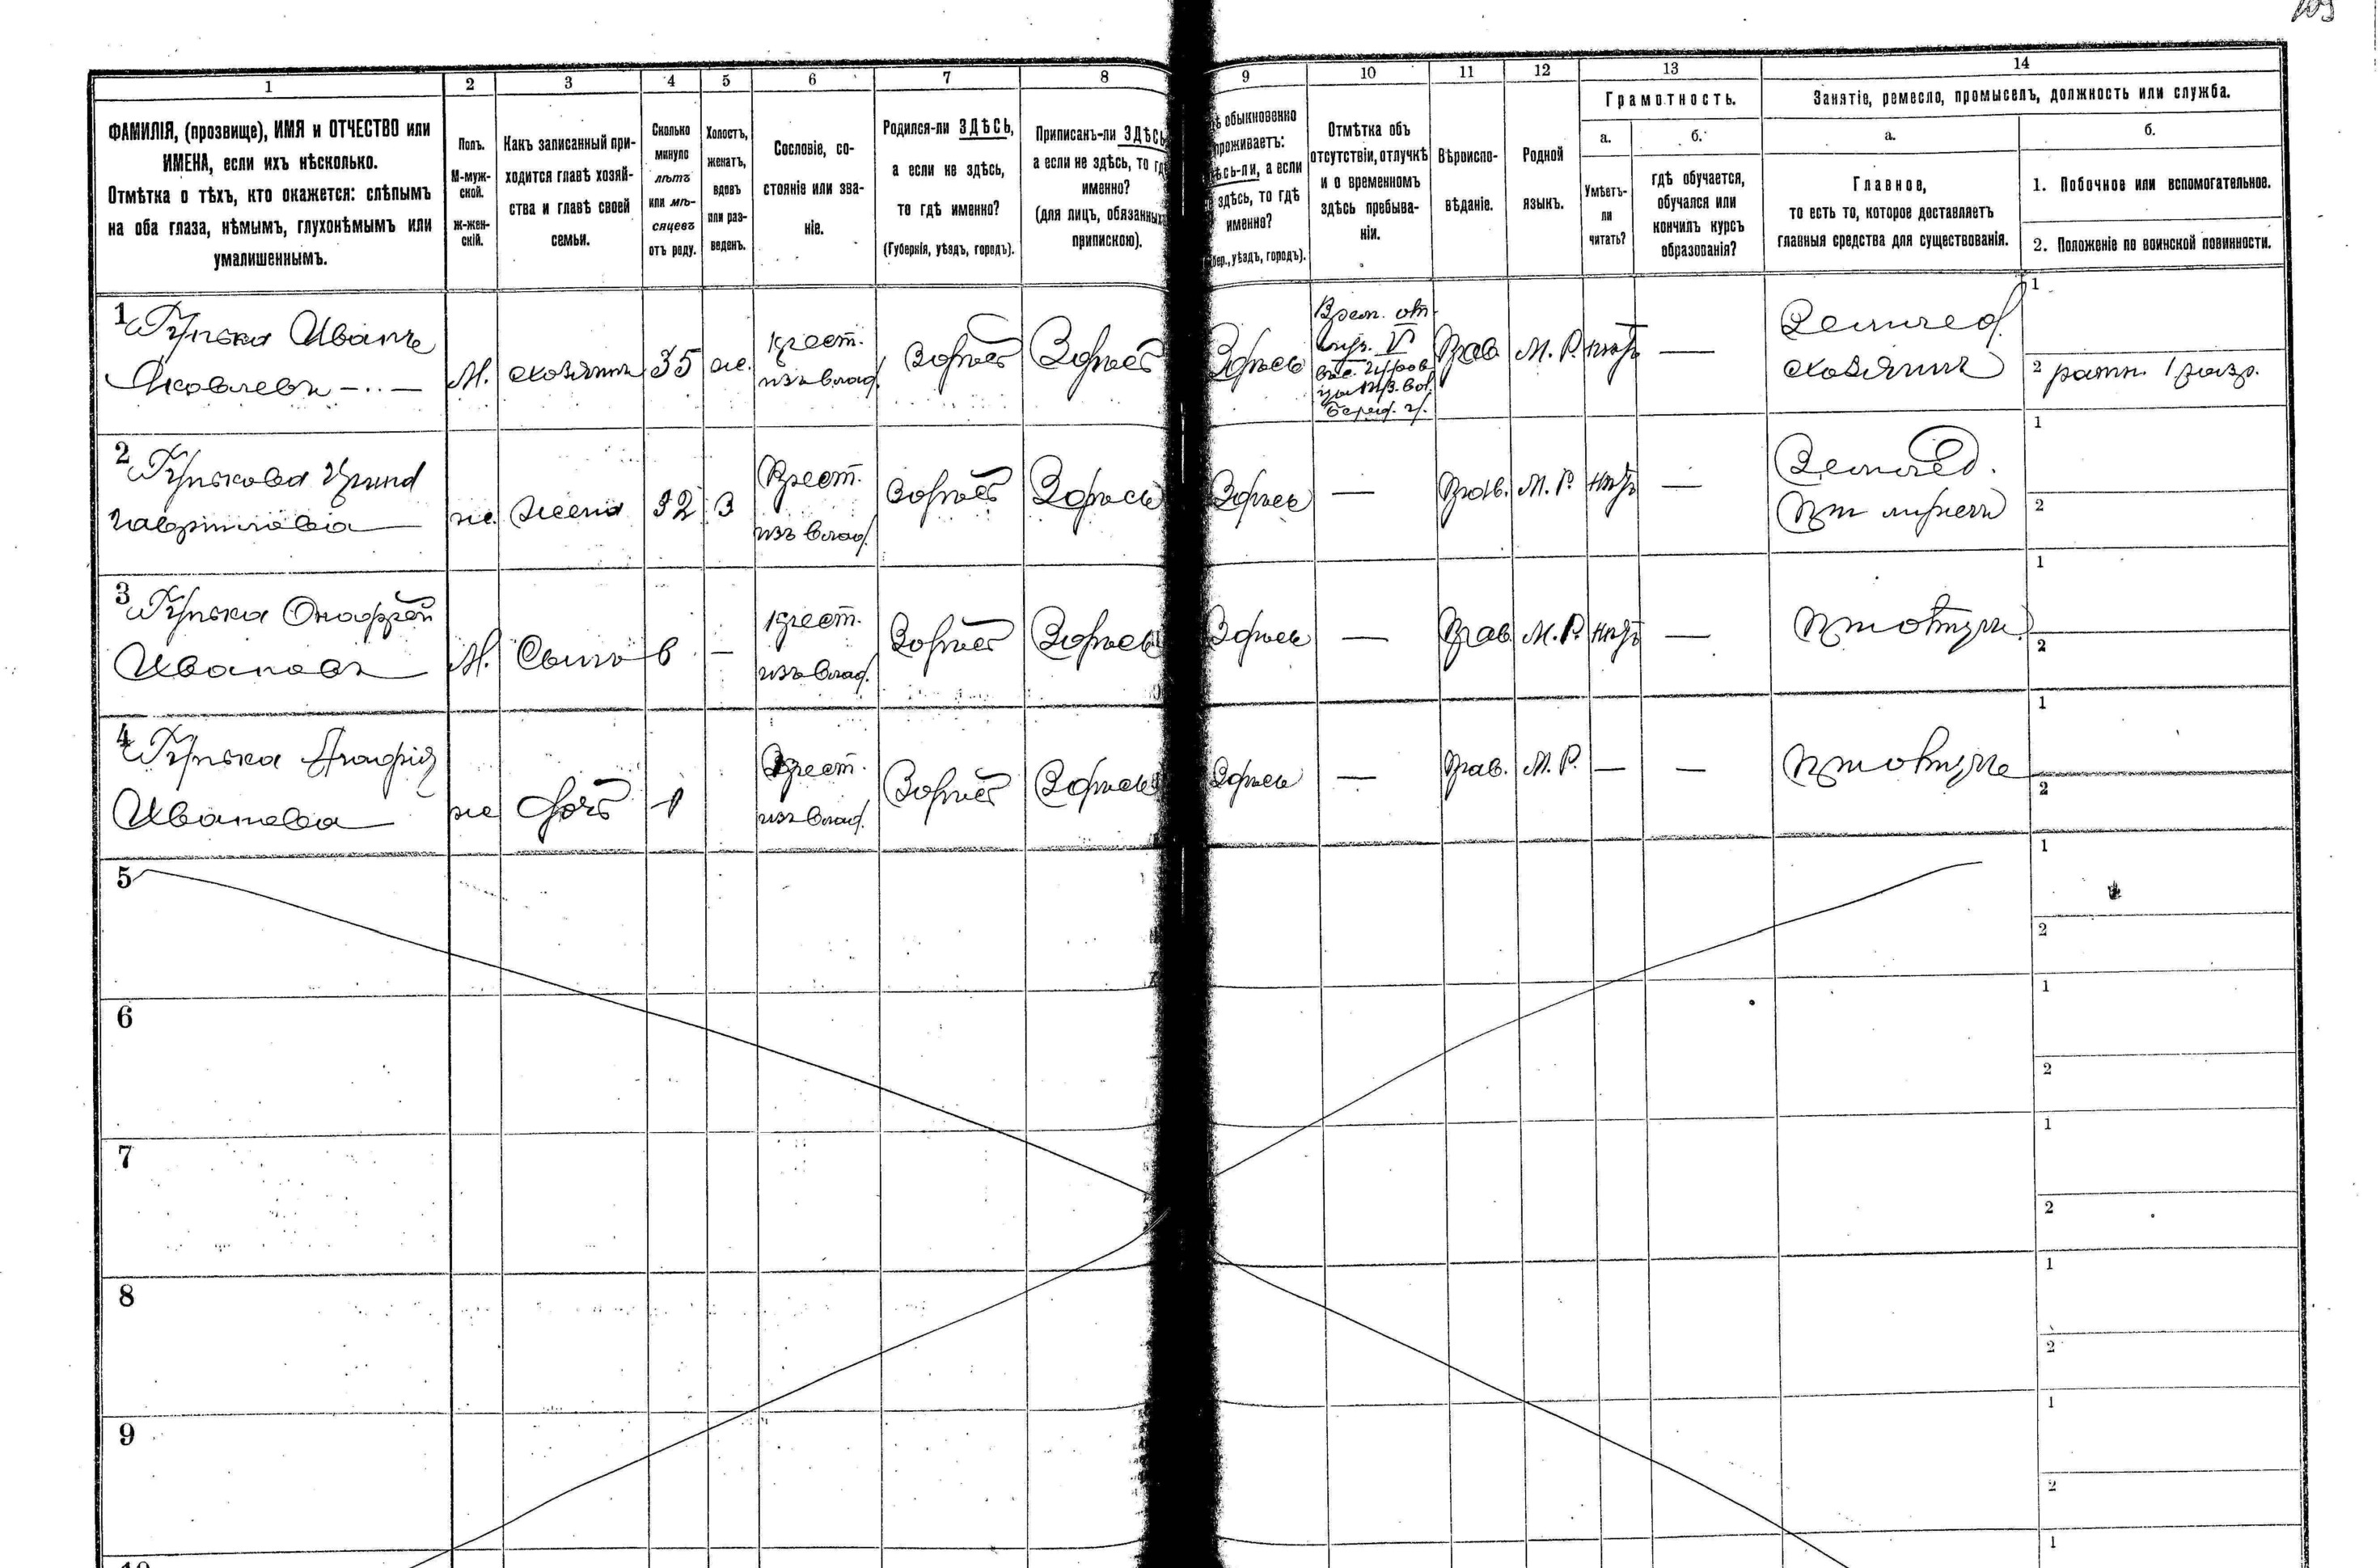 1
2
3
4
5
6
7
8
9
10
11
12
13
14
ФАМИЛІЯ, (прозвище), ИМЯ и ОТЧЕСТВО или
ИМЕНА, если ихъ нѣсколько.
Отмѣтка о тѣхъ, кто окажется: слѣпымъ
на оба глаза, нѣмымъ, глухонѣмымъ или
умалишеннымъ.
Полъ.
М-муж-
ской.
Ж-жен-
скій.
Какъ записанный при-
ходится главѣ хозяй-
ства и главѣ своей
семьи.
Сколько
минуло
лѣтъ
или мѣ-
сяцевъ
отъ роду.
Холостъ,
женатъ,
вдовъ
или раз-
веденъ.
Сословіе, со-
стояніе или зва-
ніе.
Родился-ли ЗДѢСЬ,
а если не здѣсь,
то гдѣ именно?
(Губернія, уѣздъ, городъ).
Приписанъ-ли ЗДѢСЬ
а если не здѣсь, то гдѣ
именно?
(для лицъ, обязанныхъ
припискою).
обыкновенно
проживаетъ:
а если
здѣсь, то гдѣ
именно?
уѣздъ, городъ).
Отмѣтка объ
отсутствіи, отлучкѣ
и о временномъ
здѣсь пребыва-
ніи.
Вѣроиспо-
вѣданіе.
Родной
языкъ.
Грамотность.
а.
Умѣетъ-
ли
читать?
б.
гдѣ обучается,
обучался или
кончилъ курсъ
образованія?
Занятіе, ремесло, промыселъ, должность или служба.
а.
Главное,
то есть то, которое доставляетъ
главныя средства для существованія.
б.
1. Побочное или вспомогательное.
2. Положеніе по воинской повинности.
1
Иванъ
Яковлевъ
М.
хозяинъ
35
ж.
крест.
изъ влад.
Здѣсь
Здѣсь
Здѣсь
Прав.
М. Р.
нѣтъ
—
Землед.
хозяинъ
1
2 ратн. 1 разр.
2
Гаврилова
ж.
жена
32
З
Крест.
изъ влад.
Здѣсь
Здѣсь
Здѣсь
—
Прав.
М. Р.
нѣтъ
—
Землед.
при мужѣ
1
2
3
Онофрей
Ивановъ
М.
Сынъ
6
—
крест.
изъ влад.
Здѣсь
Здѣсь
Здѣсь
—
Прав.
М. Р.
нѣтъ
—
при отцѣ
1
2
4
Ивановa
ж
дочь
1
Крест.
изъ влад.
Здѣсь
Здѣсь
Здѣсь
—
Прав.
М. Р.
—
—
при отцѣ
1
2
5
1
2
6
1
2
7
1
2
8
1
2
9
1
2
1